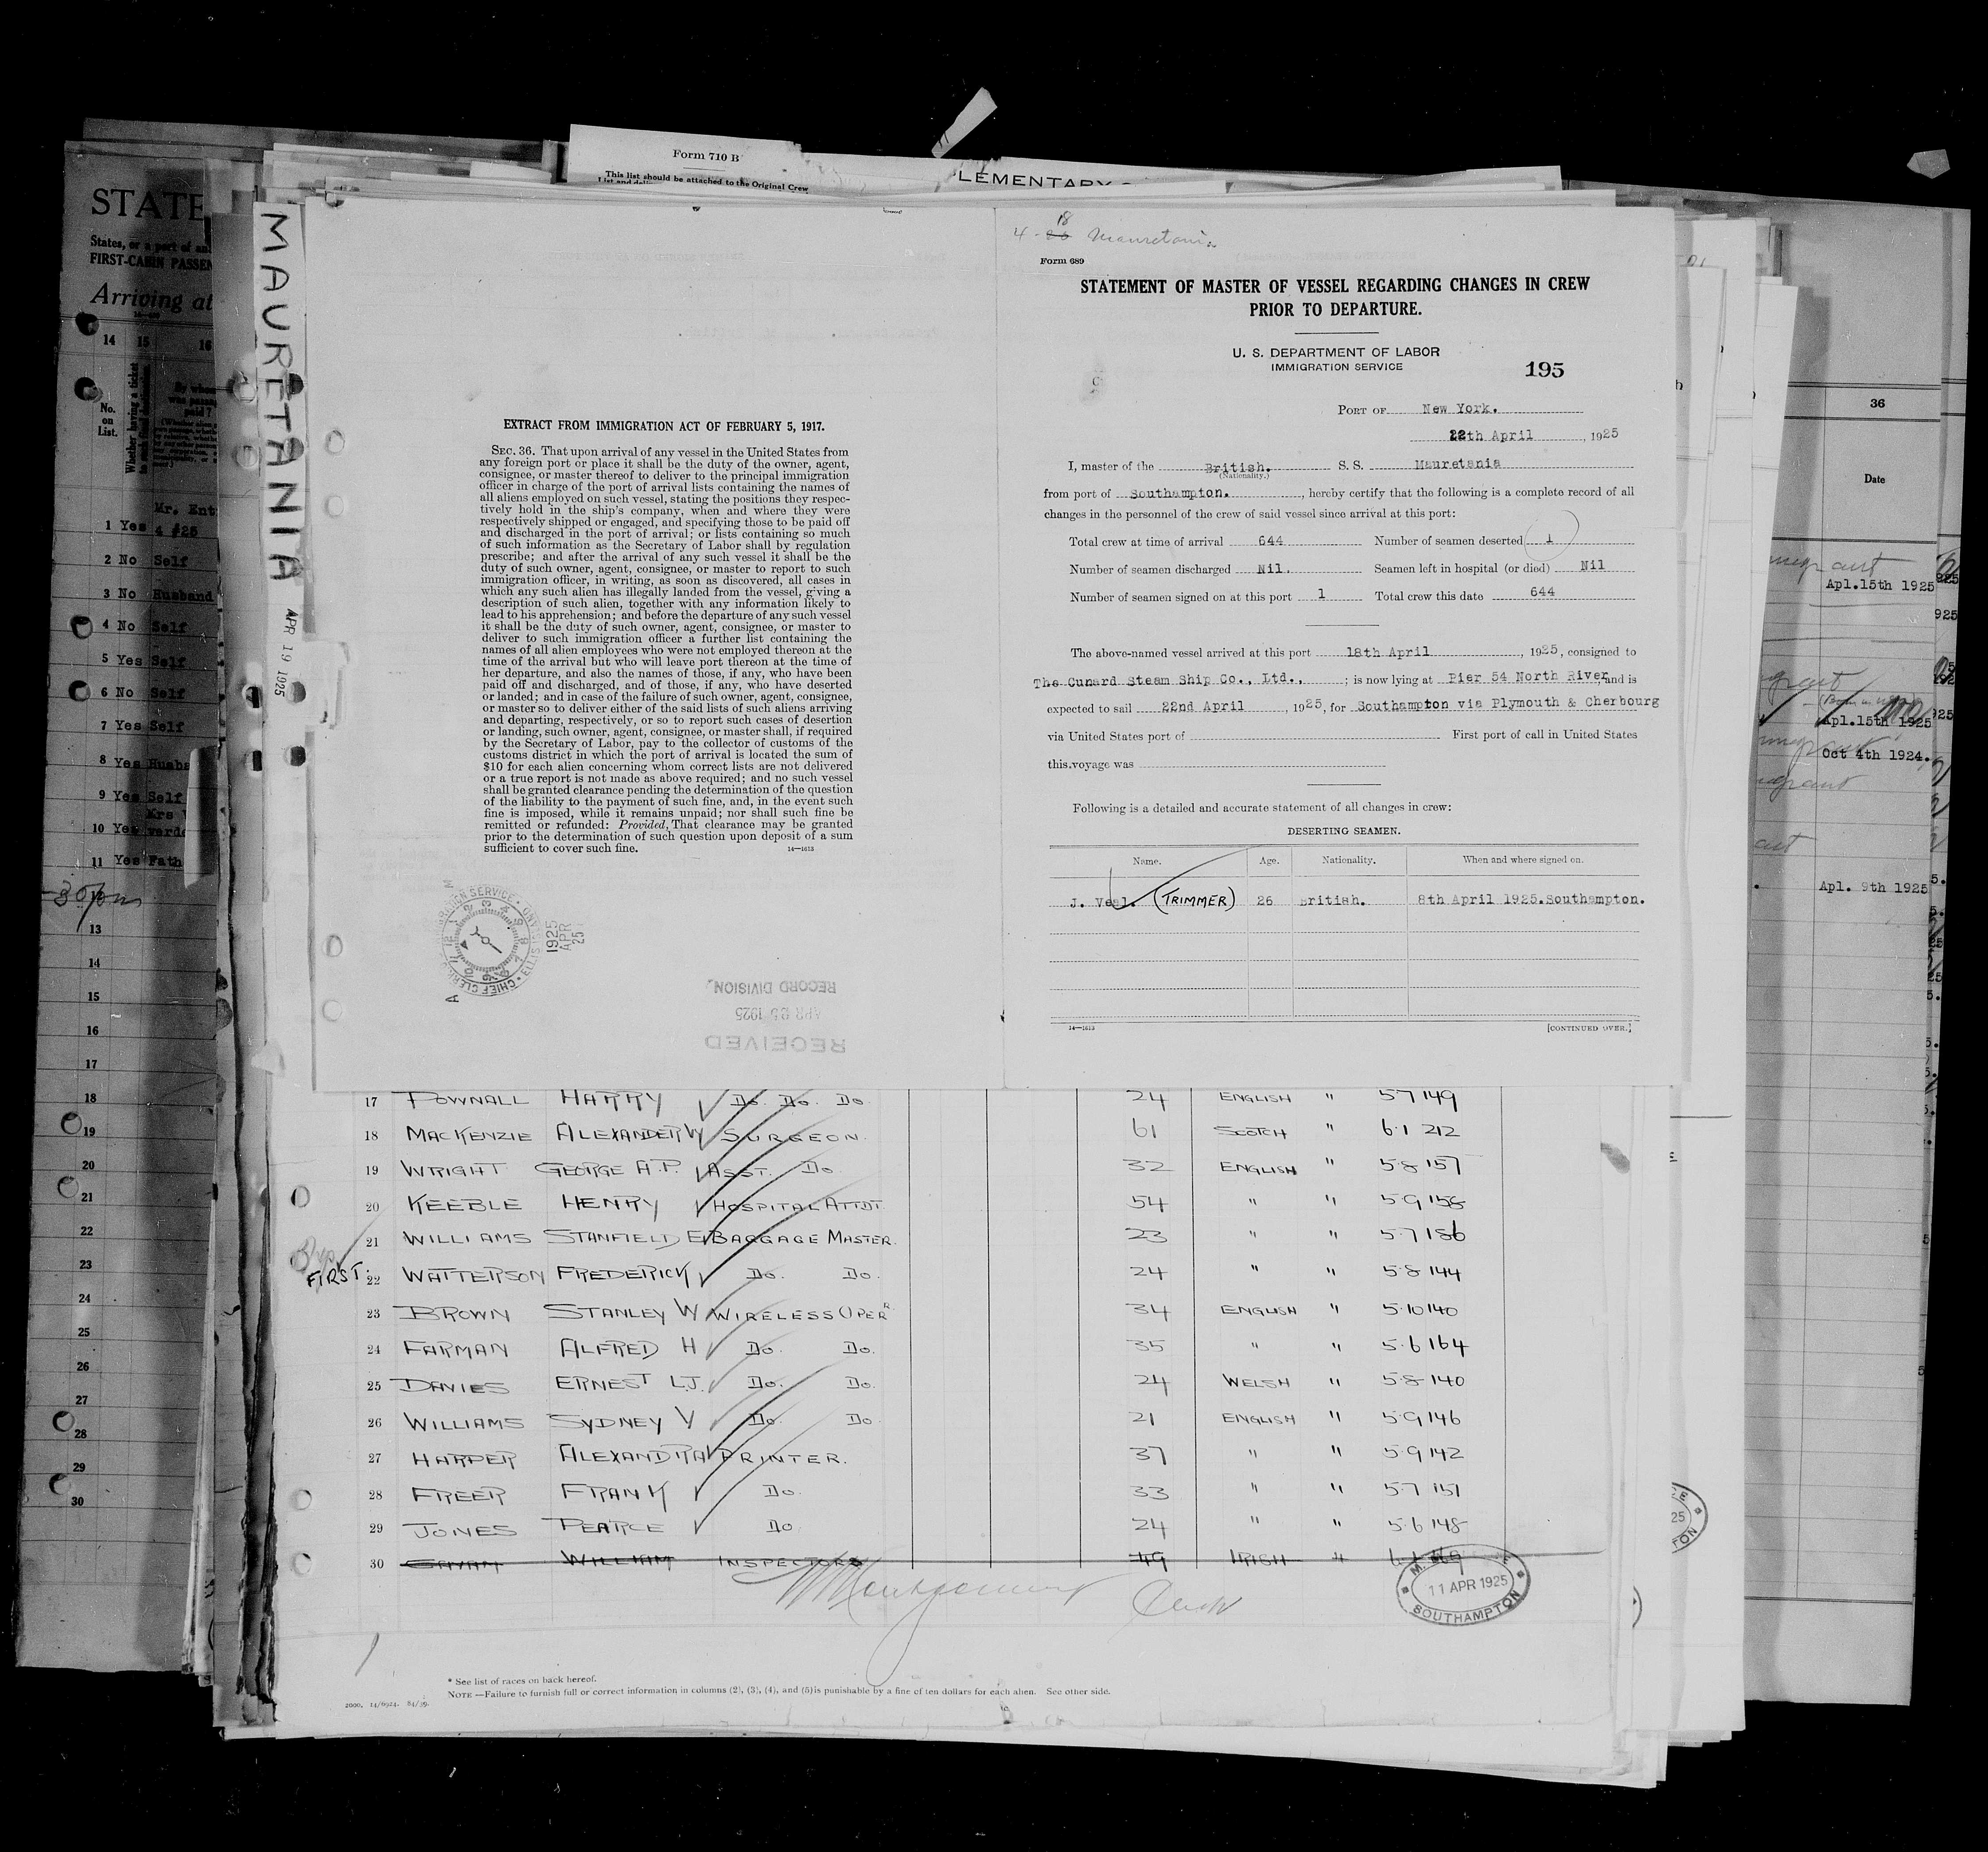 Form 710 B
This list should be attached to the Original Crew
LEMENTARY
STATE
States, or a port of an
FIRST-CABIN PASSEN
Arriving at
14 15 16
No.
on
List.
Whether having a ticket
By whom
was passage
paid?
Mr. Ent
1 Yes 4 #25
2 No Self
3 No Husband
4 No Self
5 Yes Self
6 No Self
7 Yes Self
8 Yes Husba
9 Yes Self
Mrs
10 Yes
11 Yes Fath
13
14
15
16
17
18
19
20
21
22
23
24
25
26
27
28
29
30
MAURETANIA
APR 19 1925
EXTRACT FROM IMMIGRATION ACT OF FEBRUARY 5, 1917.
SEC. 36. That upon arrival of any vessel in the United States from
any foreign port or place it shall be the duty of the owner, agent,
consignee, or master thereof to deliver to the principal immigration
officer in charge of the port of arrival lists containing the names of
all aliens employed on such vessel, stating the positions they respec-
tively hold in the ship's company, when and where they were
respectively shipped or engaged, and specifying those to be paid off
and discharged in the port of arrival; or lists containing so much
of such information as the Secretary of Labor shall by regulation
prescribe; and after the arrival of any such vessel it shall be the
duty of such owner, agent, consignee, or master to report to such
immigration officer, in writing, as soon as discovered, all cases in
which any such alien has illegally landed from the vessel, giving a
description of such alien, together with any information likely to
lead to his apprehension; and before the departure of any such vessel
it shall be the duty of such owner, agent, consignee, or master to
deliver to such immigration officer a further list containing the
names of all alien employees who were not employed thereon at the
time of the arrival but who will leave port thereon at the time of
her departure, and also the names of those, if any, who have been
paid off and discharged, and of those, if any, who have deserted
or landed; and in case of the failure of such owner, agent, consignee,
or master so to deliver either of the said lists of such aliens arriving
and departing, respectively, or so to report such cases of desertion
or landing, such owner, agent, consignee, or master shall, if required
by the Secretary of Labor, pay to the collector of customs of the
customs district in which the port of arrival is located the sum of
$10 for each alien concerning whom correct lists are not delivered
or a true report is not made as above required; and no such vessel
shall be granted clearance pending the determination of the question
of the liability to the payment of such fine, and, in the event such
fine is imposed, while it remains unpaid; nor shall such fine be
remitted or refunded: Provided, That clearance may be granted
prior to the determination of such question upon deposit of a sum
sufficient to cover such fine.
14—1613
1925
APR
25
RECEIVED
APR 25 1925
RECORD DIVISION.
4-18 Mauretania
Form 689
STATEMENT OF MASTER OF VESSEL REGARDING CHANGES IN CREW
PRIOR TO DEPARTURE.
U. S. DEPARTMENT OF LABOR
IMMIGRATION SERVICE
195
PORT OF New York.
22th April, 1925
I, master of the British. S. S. Mauretania
(Nationality.)
from port of Southampton., hereby certify that the following is a complete record of all
changes in the personnel of the crew of said vessel since arrival at this port:
Total crew at time of arrival 644 Number of seamen deserted 1
Number of seamen discharged Nil. Seamen left in hospital (or died) Nil
Number of seamen signed on at this port 1 Total crew this date 644
The above-named vessel arrived at this port 18th April, 1925, consigned to
The Cunard Steam Ship Co., Ltd., ; is now lying at Pier 54 North River, and is
expected to sail 22nd April, 1925, for Southampton via Plymouth & Cherbourg
via United States port of First port of call in United States
this voyage was
Following is a detailed and accurate statement of all changes in crew:
DESERTING SEAMEN.
Name. Age. Nationality. When and where signed on.
J. Veal. (TRIMMER) 26 British. 8th April 1925. Southampton.
14—1613 [CONTINUED OVER.]
36
Date
Apl.15th 1925
Apl.15th 1925
Oct 4th 1924.
Apl. 9th 1925
17 POWNALL HARRY Do. Do. Do. 24 ENGLISH " 5·7 149
18 MACKENZIE ALEXANDER W SURGEON. 61 SCOTCH " 6·1 212
19 WRIGHT GEORGE A.P. ASST. Do. 32 ENGLISH " 5·8 157
20 KEEBLE HENRY HOSPITAL ATTDT 54 " " 5·9 158
21 WILLIAMS STANFIELD E BAGGAGE MASTER. 23 " " 5·7 186
FIRST. 22 WATTERSON FREDERICK Do. Do. 24 " " 5·8 144
23 BROWN STANLEY W WIRELESS OPER 34 ENGLISH " 5·10 140
24 FARMAN ALFRED H Do. Do. 35 " " 5·6 164
25 DAVIES ERNEST L.J. Do. Do. 24 WELSH " 5·8 140
26 WILLIAMS SYDNEY V Do. Do. 21 ENGLISH " 5·9 146
27 HARPER ALEXANDRA PRINTER. 37 " " 5·9 142
28 FREER FRANK Do. 33 " " 5·7 151
29 JONES PEARCE Do 24 " " 5·6 148
30 WILLIAM INSPECTOR 49 IRISH "
11 APR 1925
SOUTHAMPTON
* See list of races on back hereof.
NOTE —Failure to furnish full or correct information in columns (2), (3), (4), and (5) is punishable by a fine of ten dollars for each alien. See other side.